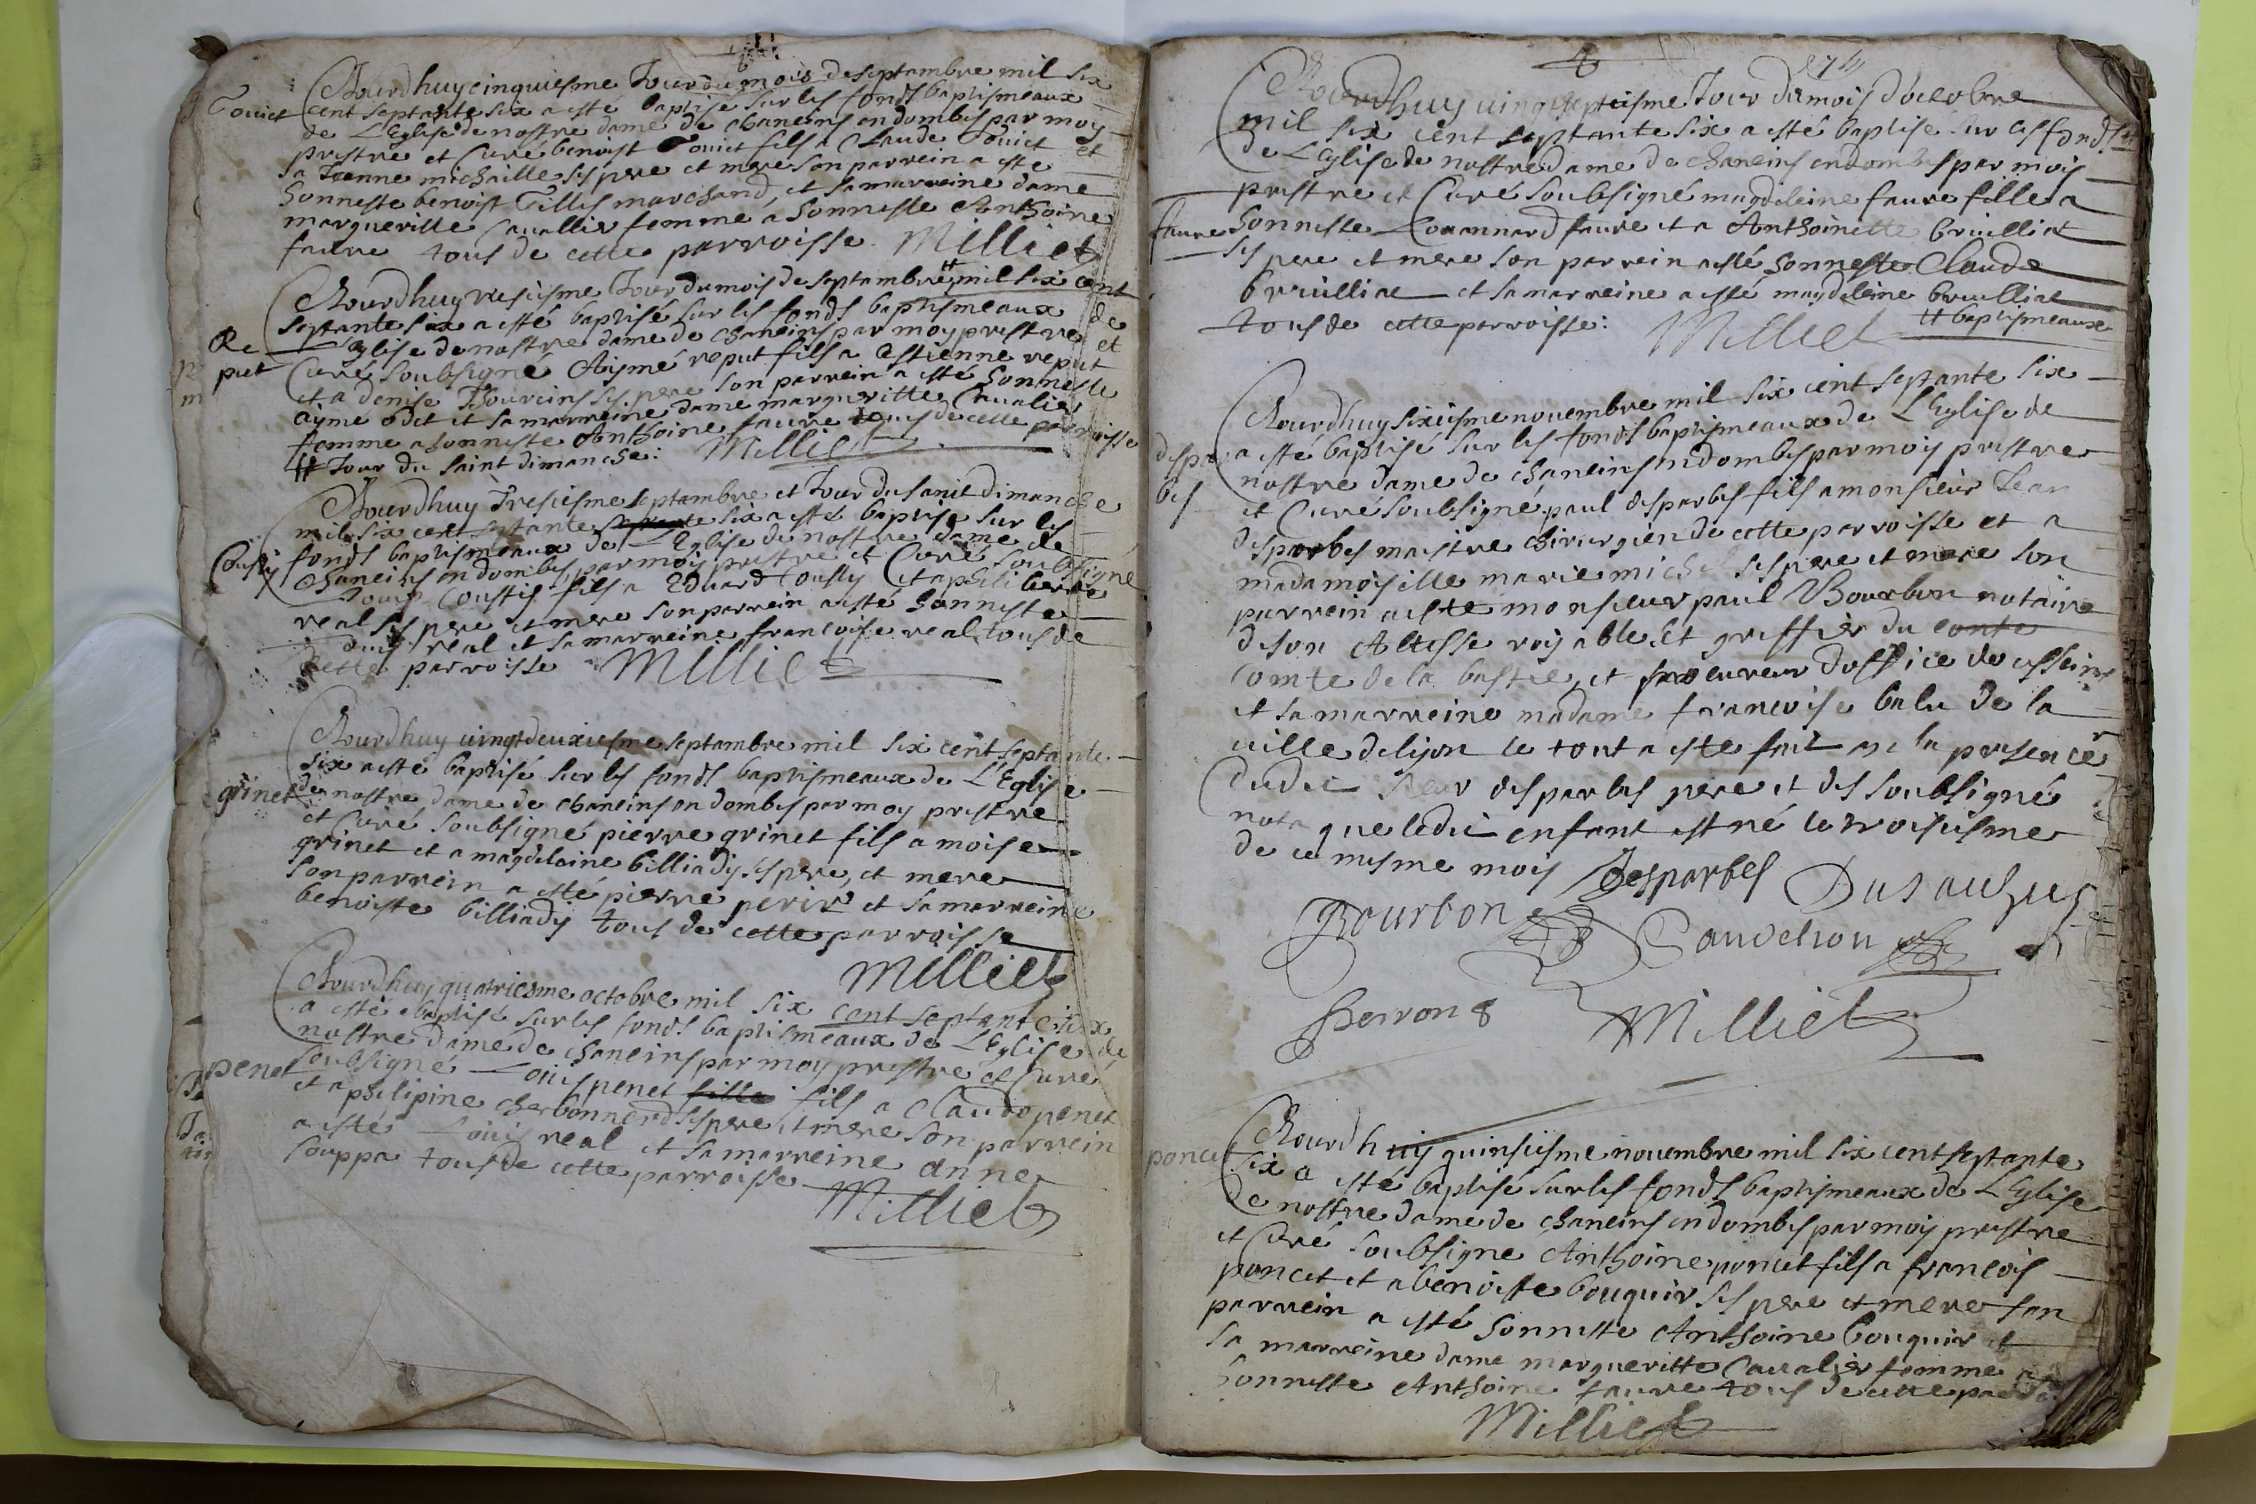 Aourdhuy cinquiesme Jour du mois de septambre mil six
Touiet cent septante six a esté baptisé sur les fonds baptismeaux
de L'Eglise de nostre dame de chaneins en dombes par moy
prestre et Curé benoist Touiet fils a Claude Touiet et
sa Jeanne michaille ses pere et mere son parrein a esté
honneste benoist Tillis marchand, et sa marreine dame
margueritte Cauallier femme a honneste Anthoine
faure tous de cette parroisse. Milliet
Aourdhuy Jour du mois de septambre # mil six cent
septante six a esté baptisé sur les fonds baptismeaux de
Re L'Eglise de nostre dame de chaneins par moy prestre et
put Curé soubsigné Aymé reput fils a Estienne reput
et a denise Bourcins ses pere son parrein a esté honneste
ayme odet et sa marreine dame margueritte Caualier
femme a honneste Anthoine faure tous de cette parroisse
# Jour du saint dimanche: Milliet
Aourdhuy Tresiesme septambre et Jour du sanit dimanche
mil six cent septante six a esté baptisé sur les
fonds baptismeaux de L'Eglise de nostre dame de
Cousty chaneins en dombes, par moy prestre et Curé soubsigné
Coustis fils a Eduard Cousty et a philiberte
real ses pere et mere son parrein a esté honneste
real et sa marreine francoise real tous de
cette parroisse Milliet
Aourdhuy uingt deuxiesme septambre mil six cent septante
six a esté baptisé sur les fonds baptismeaux de L'Eglise
grinet de nostre dame de chaneins en dombes par moy prestre
et Curé soubsigné pierre grinet fils a moise
grinet et a magdelaine billiady ses pere, et mere
son parrein a esté pierre perir et sa marreine
benoiste billiady tous de cette parroisse
Milliet
Aourdhuy quatriesme octobre mil six cent septante six
a esté baptisé sur les fonds baptismeaux de L'Eglise de
nostre dame de chaneins par moy prestre et Curé
penet soubsigné Louis penet fille fils a Claude penet
et a philipine charbonnerd ses pere et mere son parrein
a esté Louis real et sa marreine anne
souppa tous de cette parroisse
Milliet
Aourdhuy uingt septiesme Jour du mois d'octobre
mil six cent septante six a esté baptisé sur les fonds #
de L'Eglise de nostre dame de chaneins en dombes par mois
prestre et Curé soubsigné magdeleine faure fille a
faure honneste Leonnard faure et a Anthoinette bruilliat
ses pere et mere son parrein a esté honneste Claude
bruilliat et sa marreine a esté magdeleine bruilliat
tous de cette parroisse: Milliet # baptismeaux
Aourdhuy sixiesme nouembre mil six cent septante six
a esté baptisé sur les fonds baptismeaux de L'Eglise de
despar nostre dame de chaneins en dombes par mois prestre
bes et Curé soubsigné paul desparbes fils a monsieur Jean
desparbes maistre chirurgien de cette parroisse et a
madamoisille marie michel ses pere et mere son
parrein a esté monsieur paul Bourbon notaire
de son Altesse royable et greffier du conte
comte de la bastie, et procureur d'office de
et sa marreine madame francoise balu de la
uille de lion le tout a esté fait en la presence
dudit sieur desparbes pere et des soubsigné
nota que ledit enfant est né le troisiesme
de ce mesme mois Desparbes Dusauzey
Bourbon Gaudchon
Perron
Milliet
Aourdhuy quinsiesme nouembre mil six cent septante
poncet six a esté baptisé sur les fonds baptismeaux de L'Eglise
de nostre dame de chaneins en dombes par moy prestre
et Curé soubsigné Anthoine poncet fils a francois
poncet et a benoiste bouquir ses pere et mere son
parrein a esté honneste Anthoine bouquir et
sa marreine dame margueritte Caualier femme a
honneste Anthoine faure tous de cette parroi
Milliet